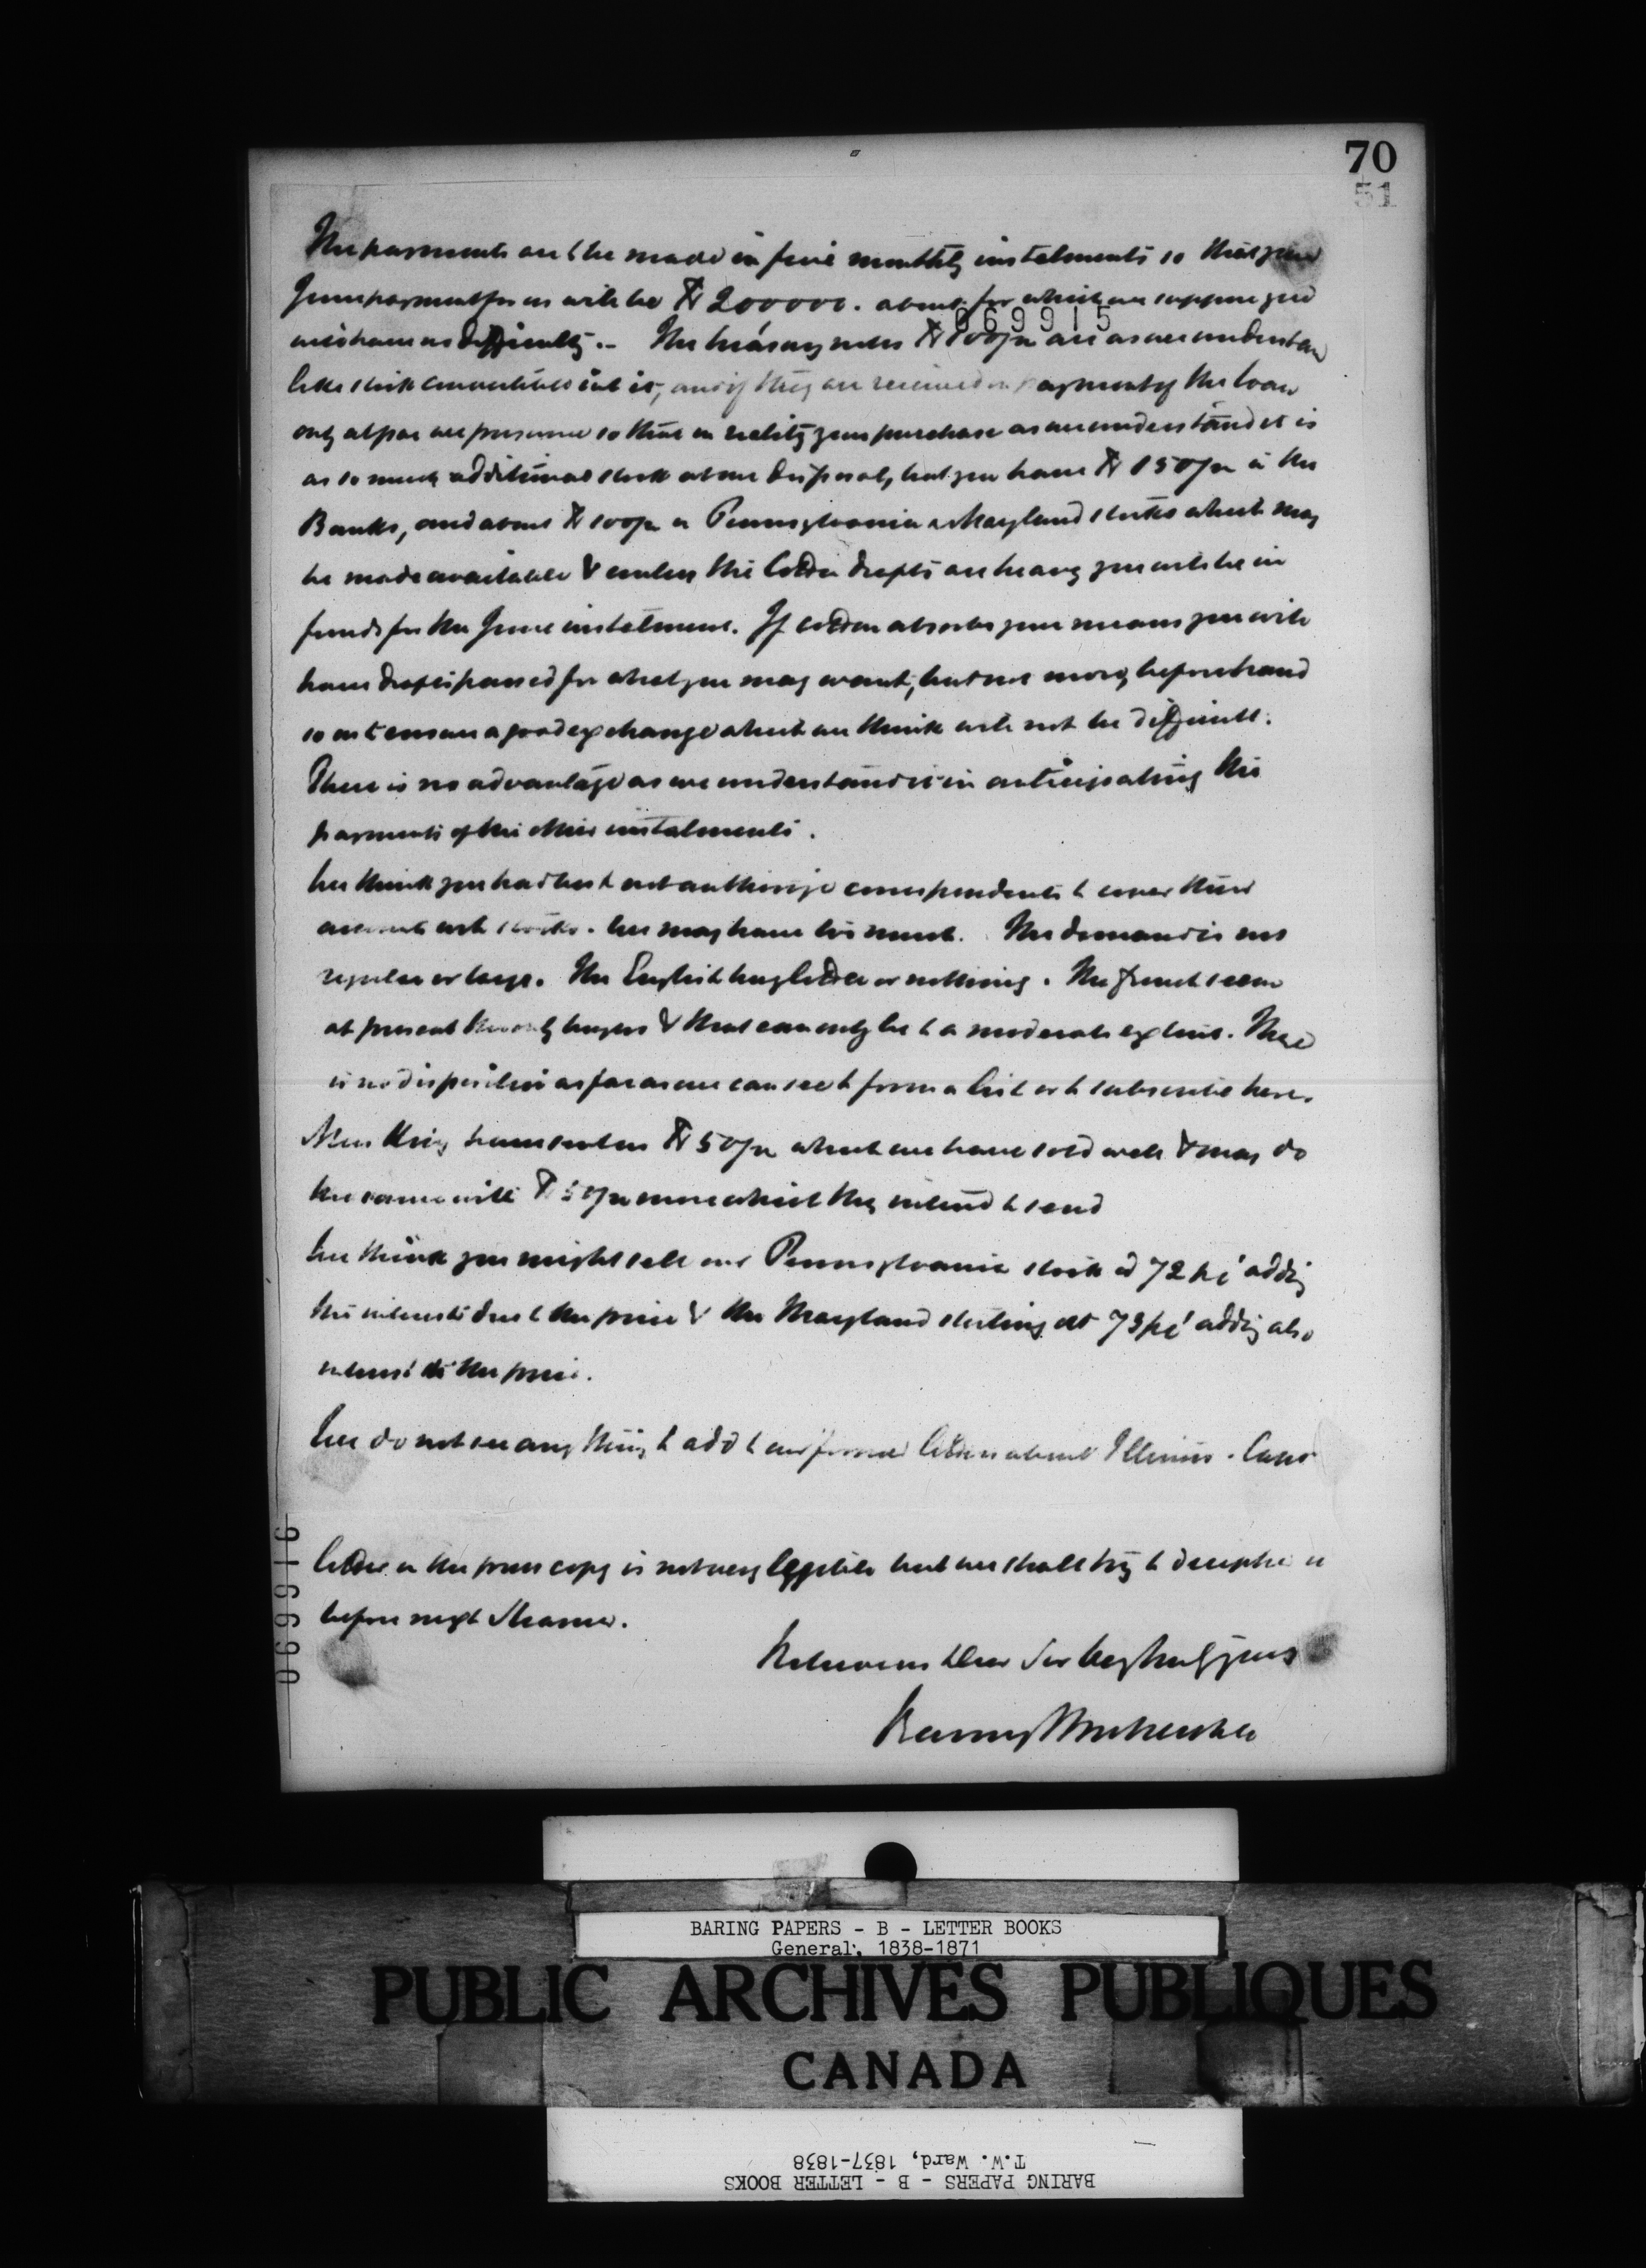 70
51
The payments are to be made in five monthly instalments so that your
June payment for us will be $200000. about for which we suppose you
will have no difficulty.. The treasury notes $100/m are as we understand
069915
like stock convertible into it, and if they are received in payment of the loan
only at par we presume so that in reality your purchase as we understand it is
as so much additional stock at our disposal, but you have $150/m in the
Banks, and about $100/m in Pennsylvania & Maryland stocks which may
be made available & unless the Cotton drafts are heavy you will be in
funds for the June instalment. If cotton absorbs your means you will
have drafts passed for what you may want, but not more, beforehand
so as to ensure a good exchange which we think will not be difficult.
There is no advantage as we understand it in anticipating the
payments of the other instalments.
We think you had best not authorize correspondents to cover their
accounts with stocks. We may have too much. The demand is not
regular or large. The English buy little or nothing. The French seem
at present the only buyers & that can only be to a moderate extent. There
is no disposition as far as we can see to form a list or to subscribe here.
Mess King have sent us $50/m which we have sold well & may do
the same with $50/m more which they intend to send
We think you might sell our Pennsylvania stock at 72 pc adding
the interest due to the price & the Maryland sterling at 73 pc adding also
interest to the price.
We do not see any thing to add to our former letters about Illinois.
letter in the press copy is not very legible but we shall try to decipher it
before next Steamer.
069916
BARING PAPERS - B - LETTER BOOKS
General, 1838-1871
PUBLIC ARCHIVES PUBLIQUES
CANADA
BARING PAPERS - B - LETTER BOOKS
T.W. Ward, 1837-1838